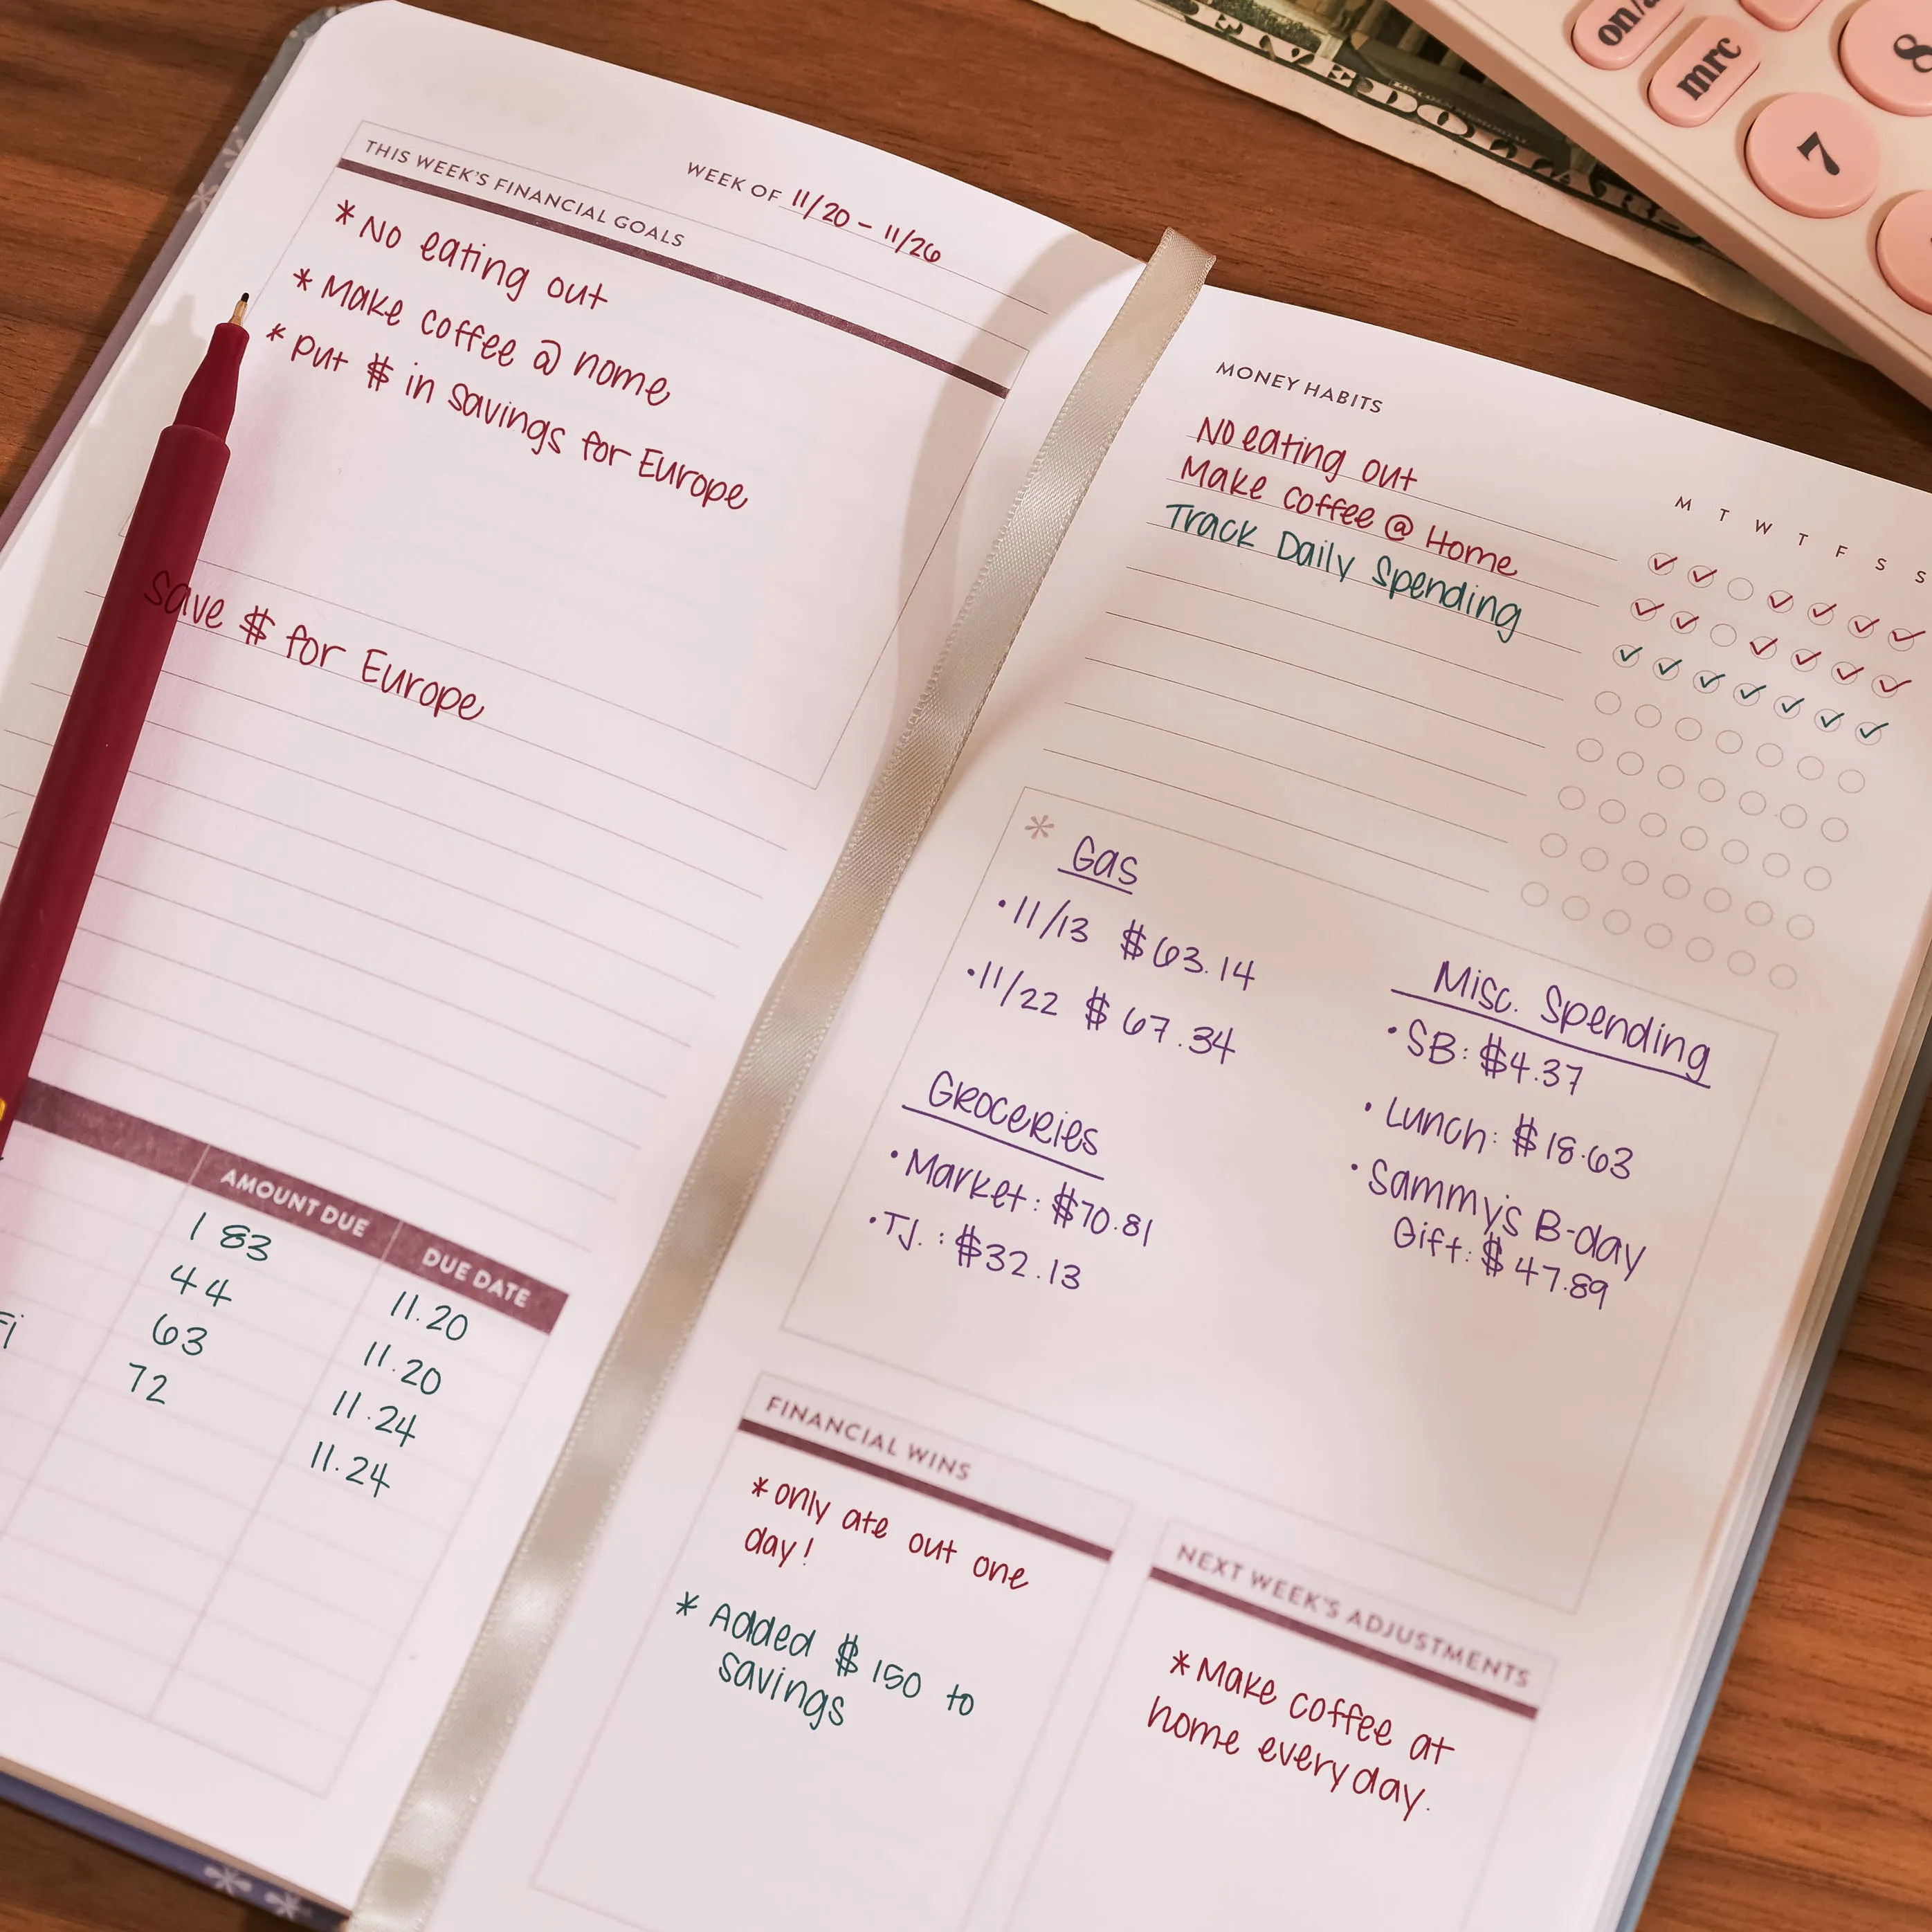 WEEK OF 11/20 - 11/26
THIS WEEK'S FINANCIAL GOALS
* No eating out
* Make coffee @ home
* Put $ in savings for Europe
Save $ for Europe
AMOUNT DUE DUE DATE
183 11.20
44 11.20
Fi 63 11.24
72 11.24
MONEY HABITS
M T W T F S S
No eating out
Make coffee @ Home
Track Daily Spending
* Gas
• 11/13 $63.14
• 11/22 $67.34
Groceries
• Market: $70.81
• T.J.: $32.13
Misc. Spending
• SB: $4.37
• Lunch: $18.63
• Sammy's B-day
Gift: $47.89
FINANCIAL WINS
* only ate out one
day!
* Added $150 to
savings
NEXT WEEK'S ADJUSTMENTS
* Make coffee at
home everyday.
FIVE DOLLARS
mrc
8
7